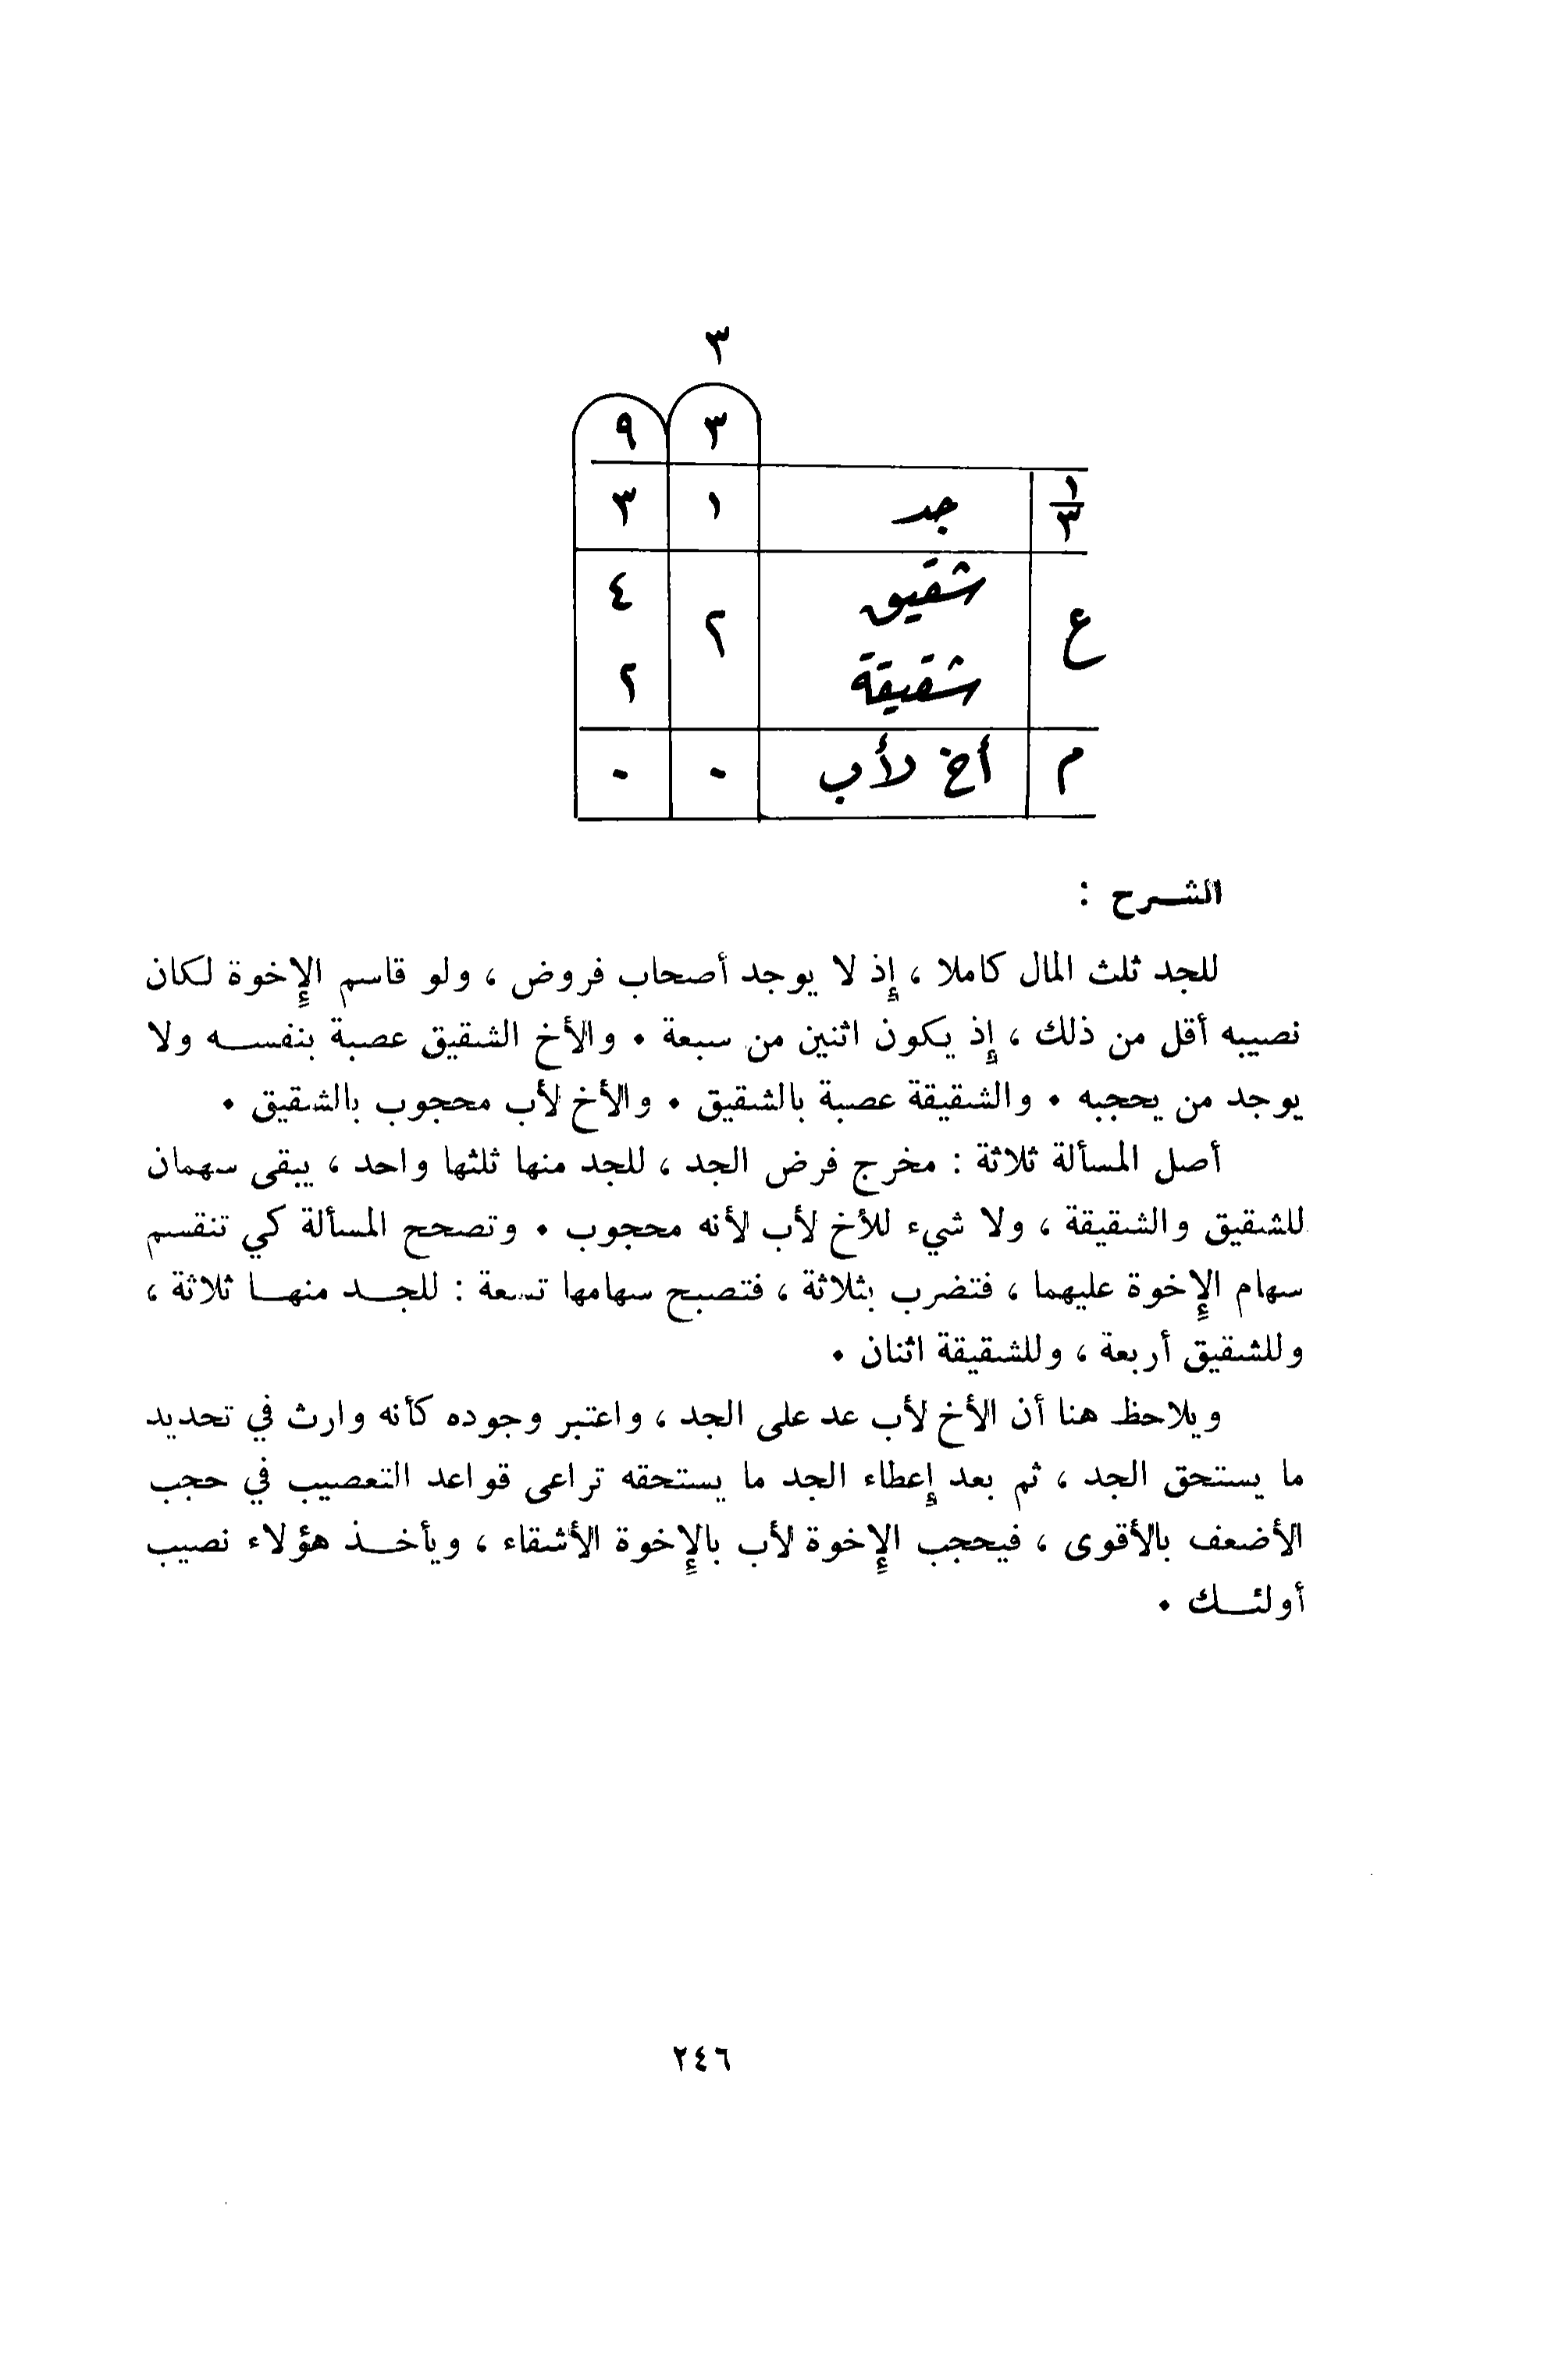 ٣
٣ ٩
١/٣ جد ١ ٣
شقيق ٤
ع ٢
شقيقة ٢
م أخ لأب ٠ ٠
الشرح :
للجد ثلث المال كاملا ، إذ لا يوجد أصحاب فروض ، ولو قاسم الإخوة لكان
نصيبه أقل من ذلك ، إذ يكون اثنين من سبعة ٠ والأخ الشقيق عصبة بنفسه ولا
يوجد من يحجبه ٠ والشقيقة عصبة بالشقيق ٠ والأخ لأب محجوب بالشقيق ٠
أصل المسألة ثلاثة : مخرج فرض الجد ، للجد منها ثلثها واحد ، يبقى سهمان
للشقيق والشقيقة ، ولا شيء للأخ لأب لأنه محجوب ٠ وتصحح المسألة كي تنقسم
سهام الإخوة عليهما ، فتضرب بثلاثة ، فتصبح سهامها تسعة : للجد منها ثلاثة ،
وللشقيق أربعة ، وللشقيقة اثنان ٠
ويلاحظ هنا أن الأخ لأب عد على الجد ، واعتبر وجوده كأنه وارث في تحديد
ما يستحق الجد ، ثم بعد إعطاء الجد ما يستحقه تراعى قواعد التعصيب في حجب
الأضعف بالأقوى ، فيحجب الإخوة لأب بالإخوة الأشقاء ، ويأخذ هؤلاء نصيب
أولئك ٠
٢٤٦